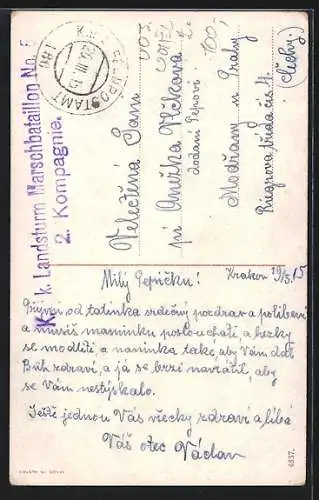 K. k. Landsturm Marschbataillon No. 5
2. Kompagnie.
FELDPOSTAMT
Velectěná Paní
pí Anežka Vlčková
dodání Pepovi
Modřany u Prahy
Riegrova třída čís.
(Čechy)
100-
Krakow 29/3 15
Milý Pepíčku!
Přijmi od tatínka srdečný pozdrav a políbení
a musíš maminku poslouchati, a hezky
se modliti, a maminka také, aby Vám dal
Bůh zdraví, a já se brzi navrátil, aby
se Vám nestýskalo.
Ještě jednou Vás všecky zdraví a líbá
Váš otec Václav
4837.